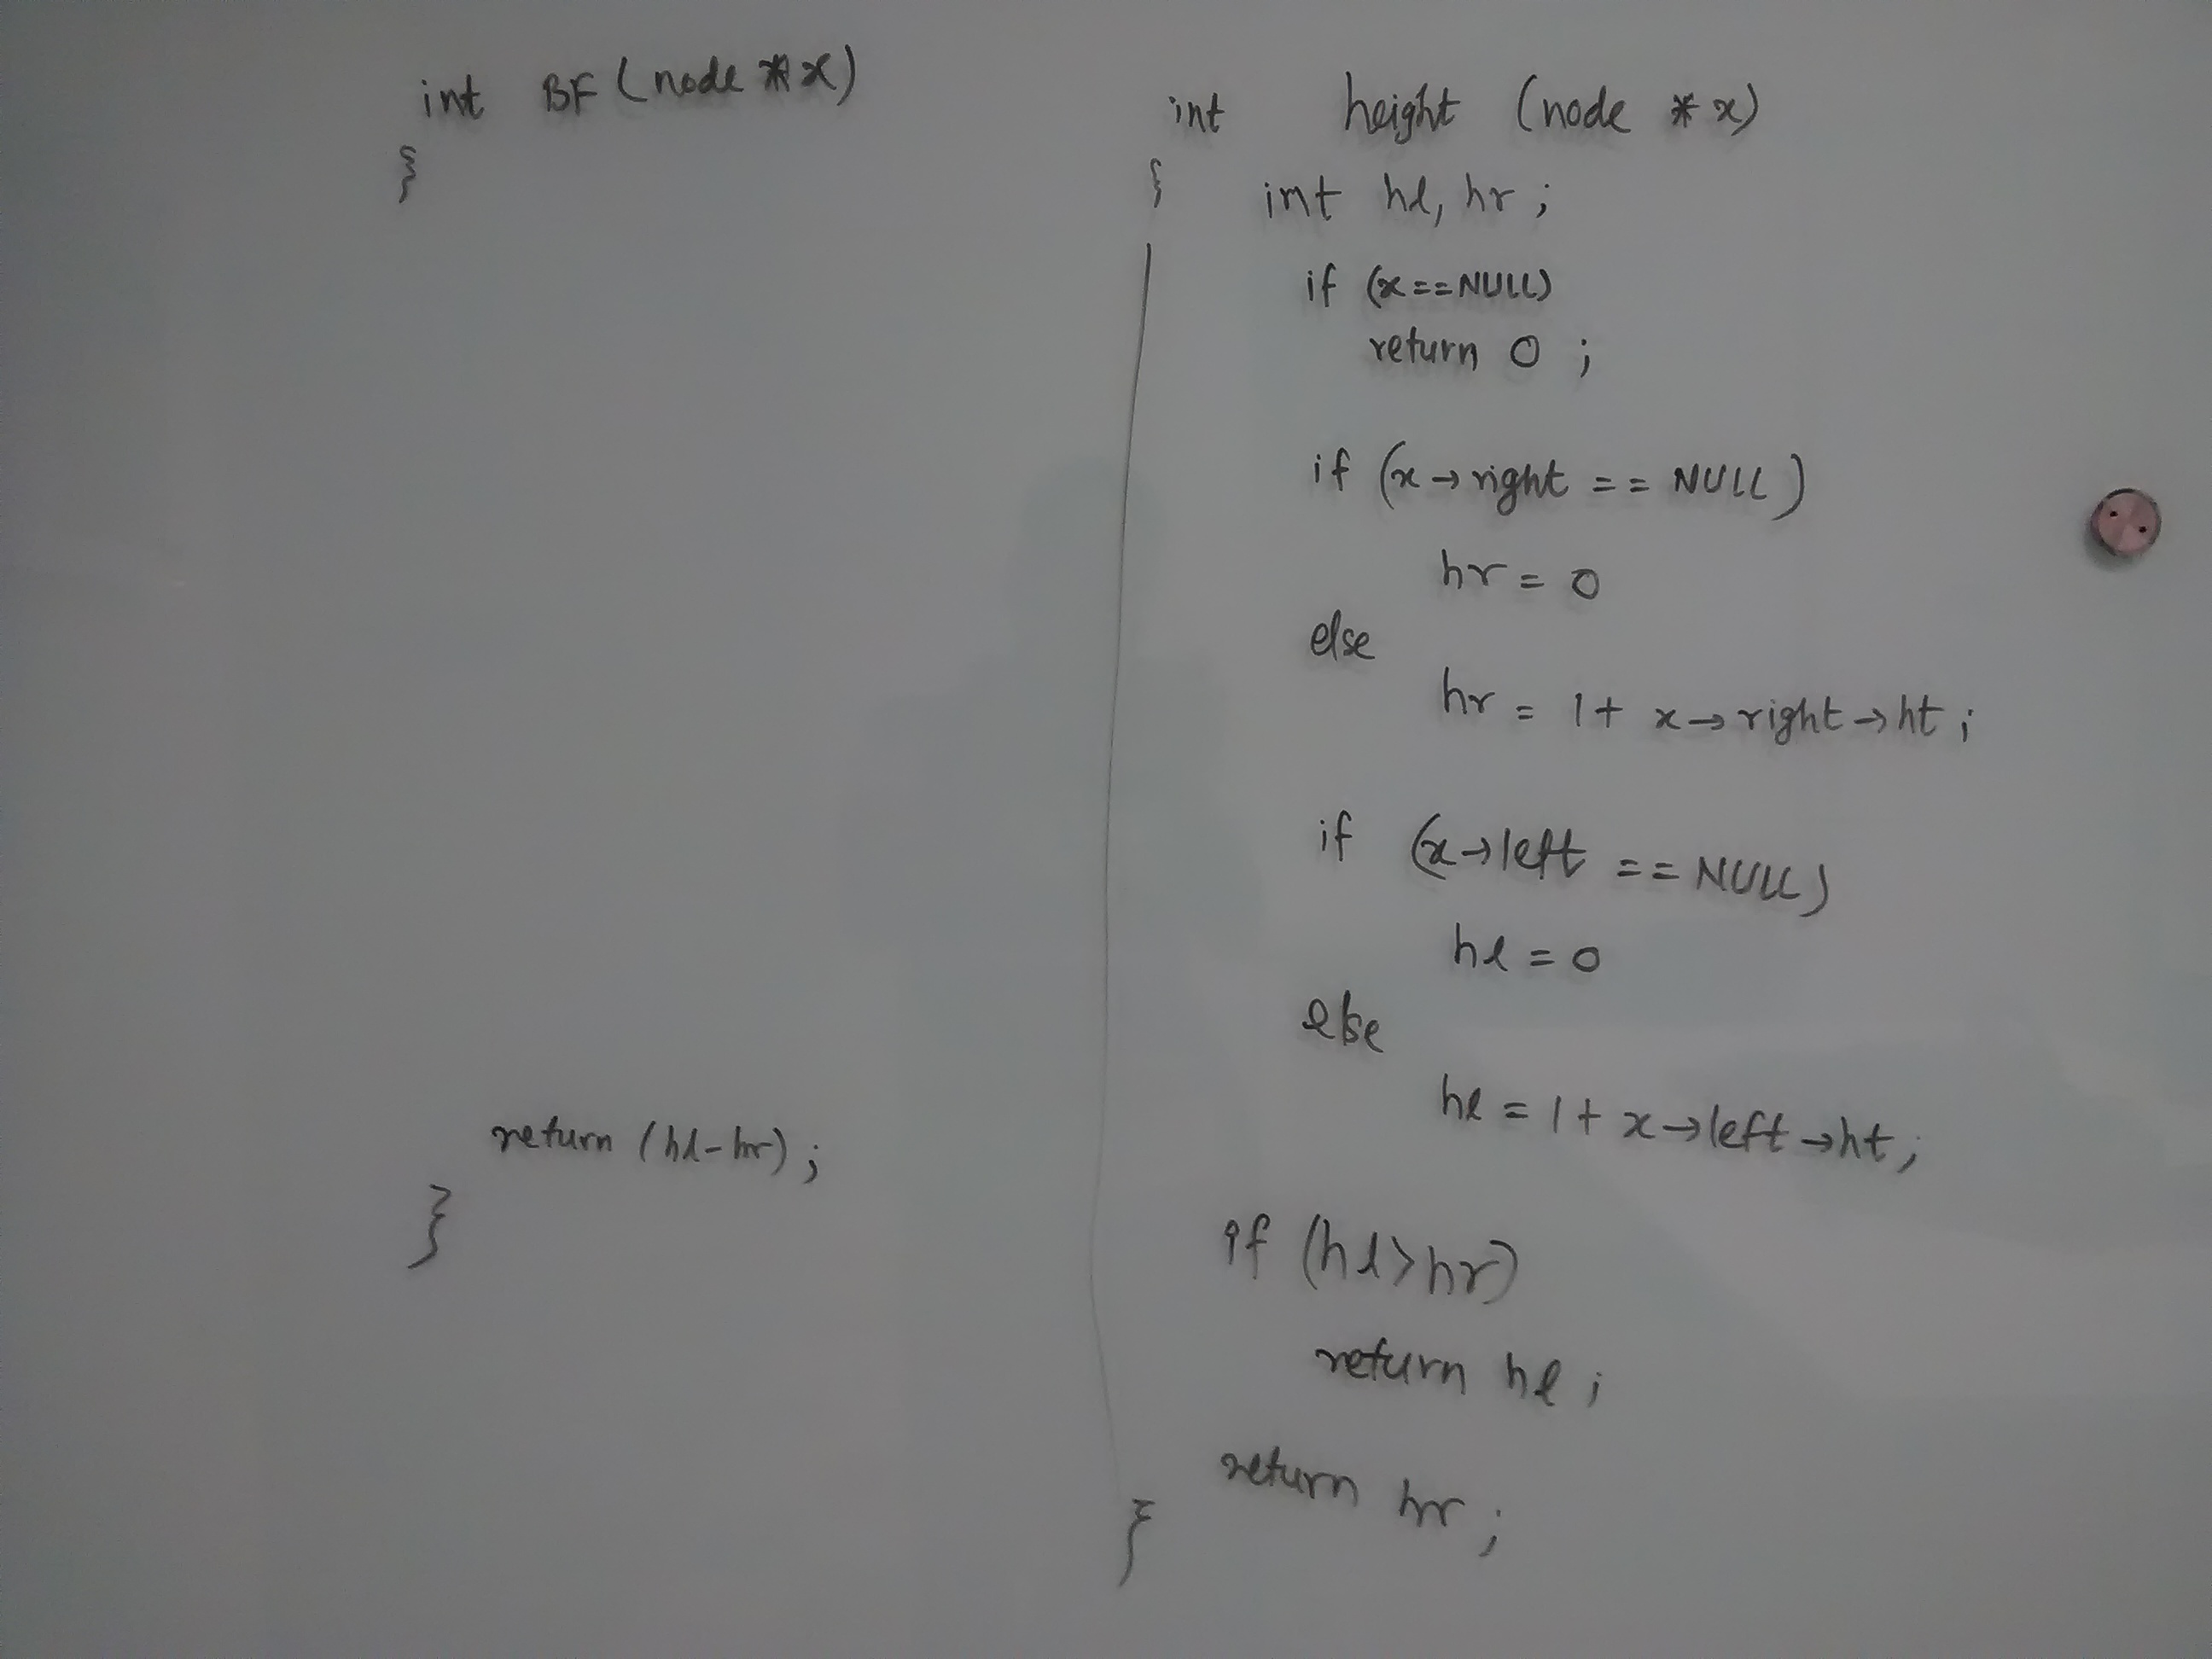 int BF (node *x)
{
return (hl-hr);
}
int height (node *x)
{ int hl, hr;
if (x==NULL)
return 0 ;
if (x→right == NULL)
hr = 0
else
hr = 1+ x→right→ht;
if (x→left == NULL)
hl = 0
else
hl = 1+ x→left→ht;
if (hl>hr)
return hl;
return hr;
}